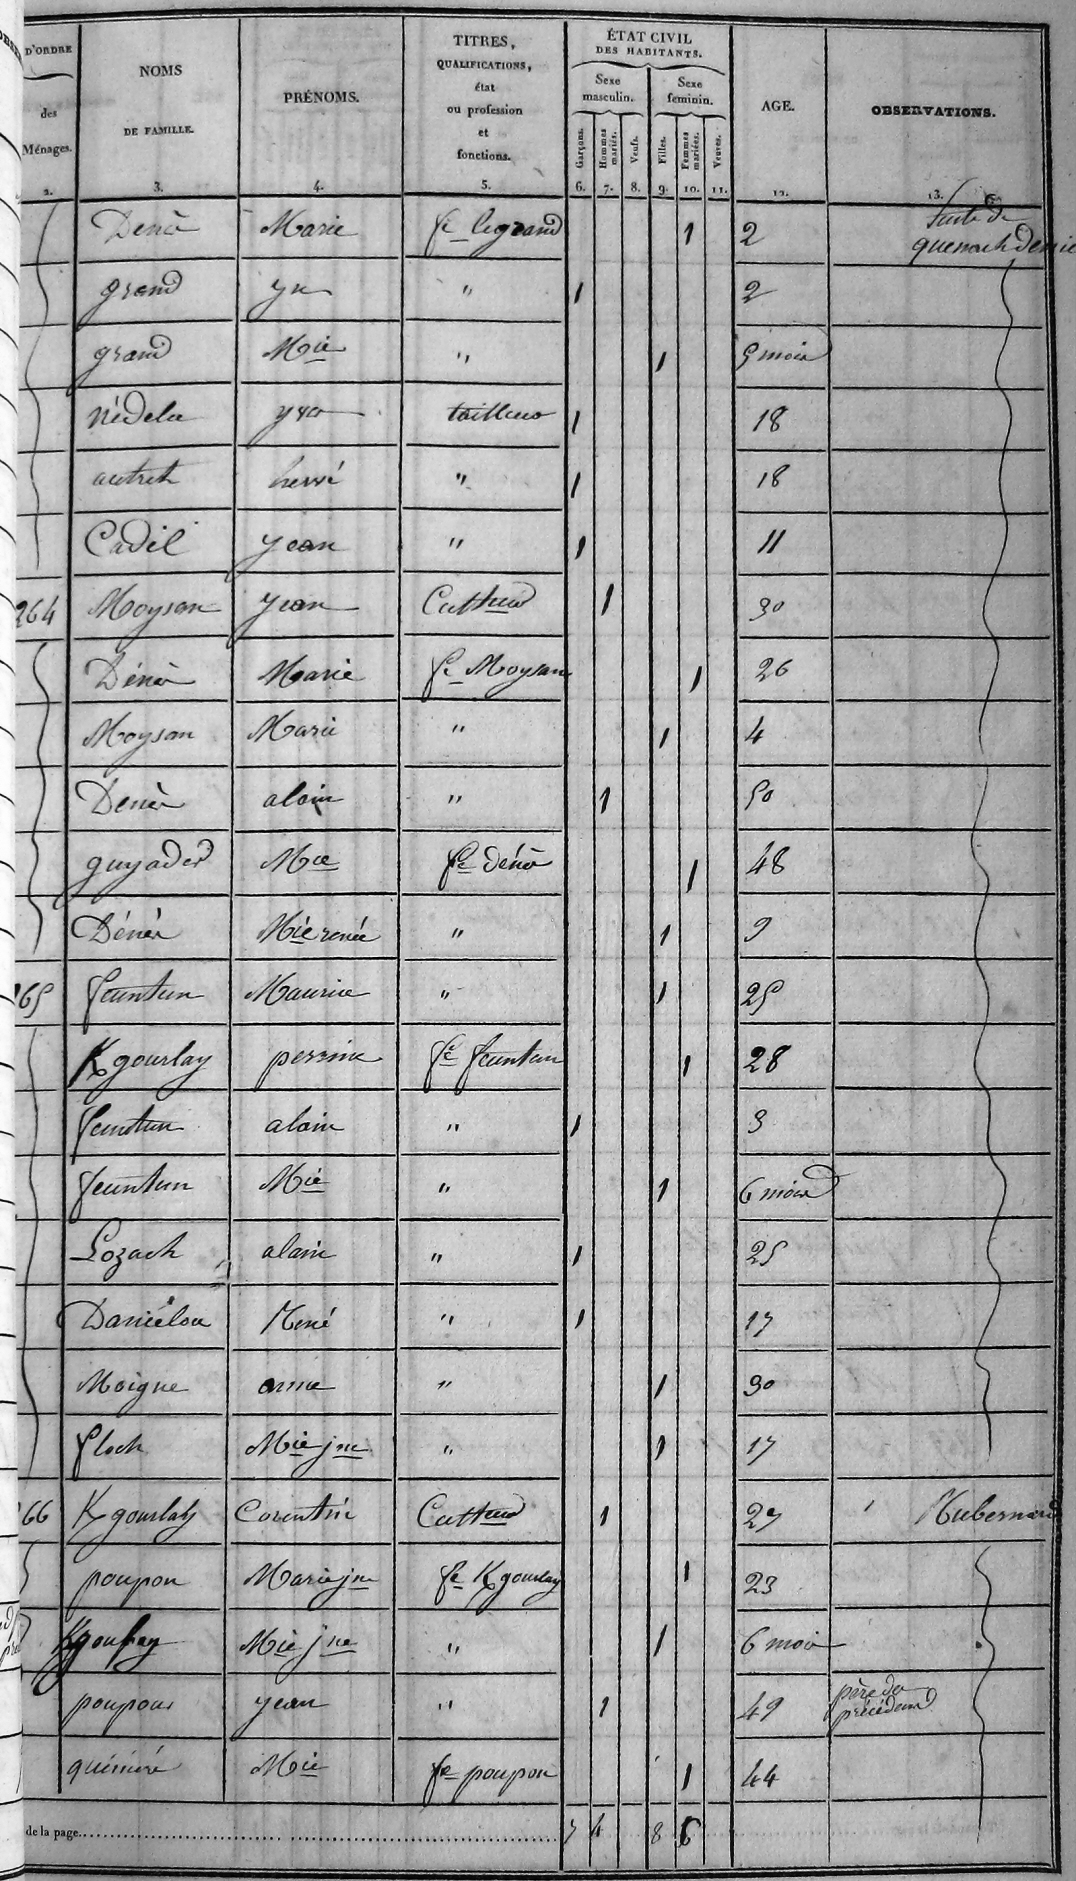 D'ORDRE
des
Ménages.
2.
NOMS
DE FAMILLE.
3.
PRÉNOMS.
4.
TITRES,
QUALIFICATIONS,
état
ou profession
et
fonctions.
5.
ÉTAT CIVIL
DES HABITANTS.
Sexe
masculin.
Sexe
feminin.
Garçons.
Hommes mariés.
Veufs.
Filles.
Femmes mariées.
Veuves.
6. 7. 8. 9. 10. 11.
AGE.
12.
OBSERVATIONS.
13.
Suite de
Denès Marie fe legrand 1 2
grand yn " 1 2
grand Mie " 1 5 mois
Nédelec yves tailleur 1 18
autret hervé " 1 18
Cadil yean " 1 11
264 Moysan yean Cultteur 1 30
Dénès Marie fe Moysan 1 26
Moysan Marie " 1 4
Denès alain " 1 50
guyader Mie fe dénès 1 48
Dénès Mie renée " 1 9
265 feuntun Maurice " 1 25
Kgourlay perrine fe feuntun 1 28
feuntun alain " 1 3
feuntun Mie " 1 6 mois
Lozach alain " 1 25
Daniélou René " 1 17
Moigne anne " 1 30
floch Mie jne " 1 17
266 Kgourlay Corentin Cultteur 1 27
poupon Marie jne fe Kgourlay 1 23
Kgourlay Mie jne " 1 6 mois
poupon yean " 1 49 père du
précédent
quéméré Mie fe poupon 1 44
de la page 7 4 8 6